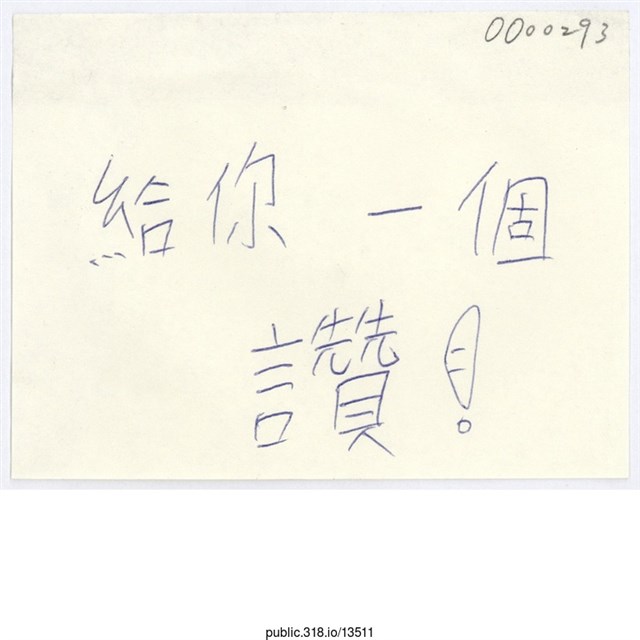 0000293
給你一個
讚！
public.318.io/13511